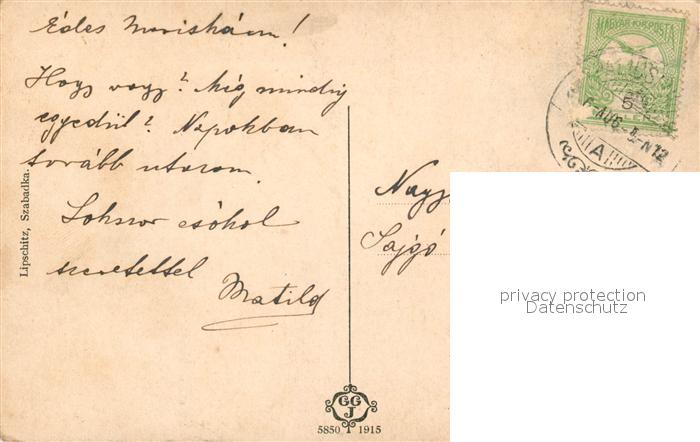 Édes Mariskám!
Hogy vagy? Még mindig
egyedül? Napokban
tovább utazom.
Sokszor csókol
szeretettel
Matild
Lipschitz, Szabadka.
MAGYAR KIR. POSTA
AUG
N12
A
Nagy
Sajgó
privacy protection
Datenschutz
GG
J
5850 1915